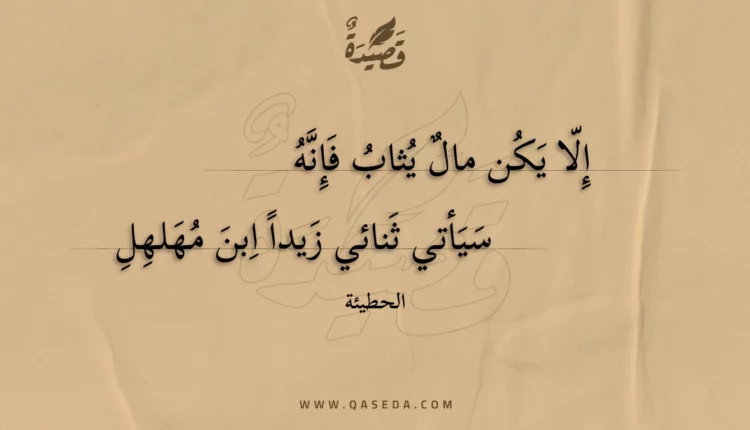 قَصِيدَةٌ
إِلّا يَكُن مالٌ يُثابُ فَإِنَّهُ
سَيَأتي ثَنائي زَيداً اِبنَ مُهَلهِلِ
الحطيئة
WWW.QASEDA.COM